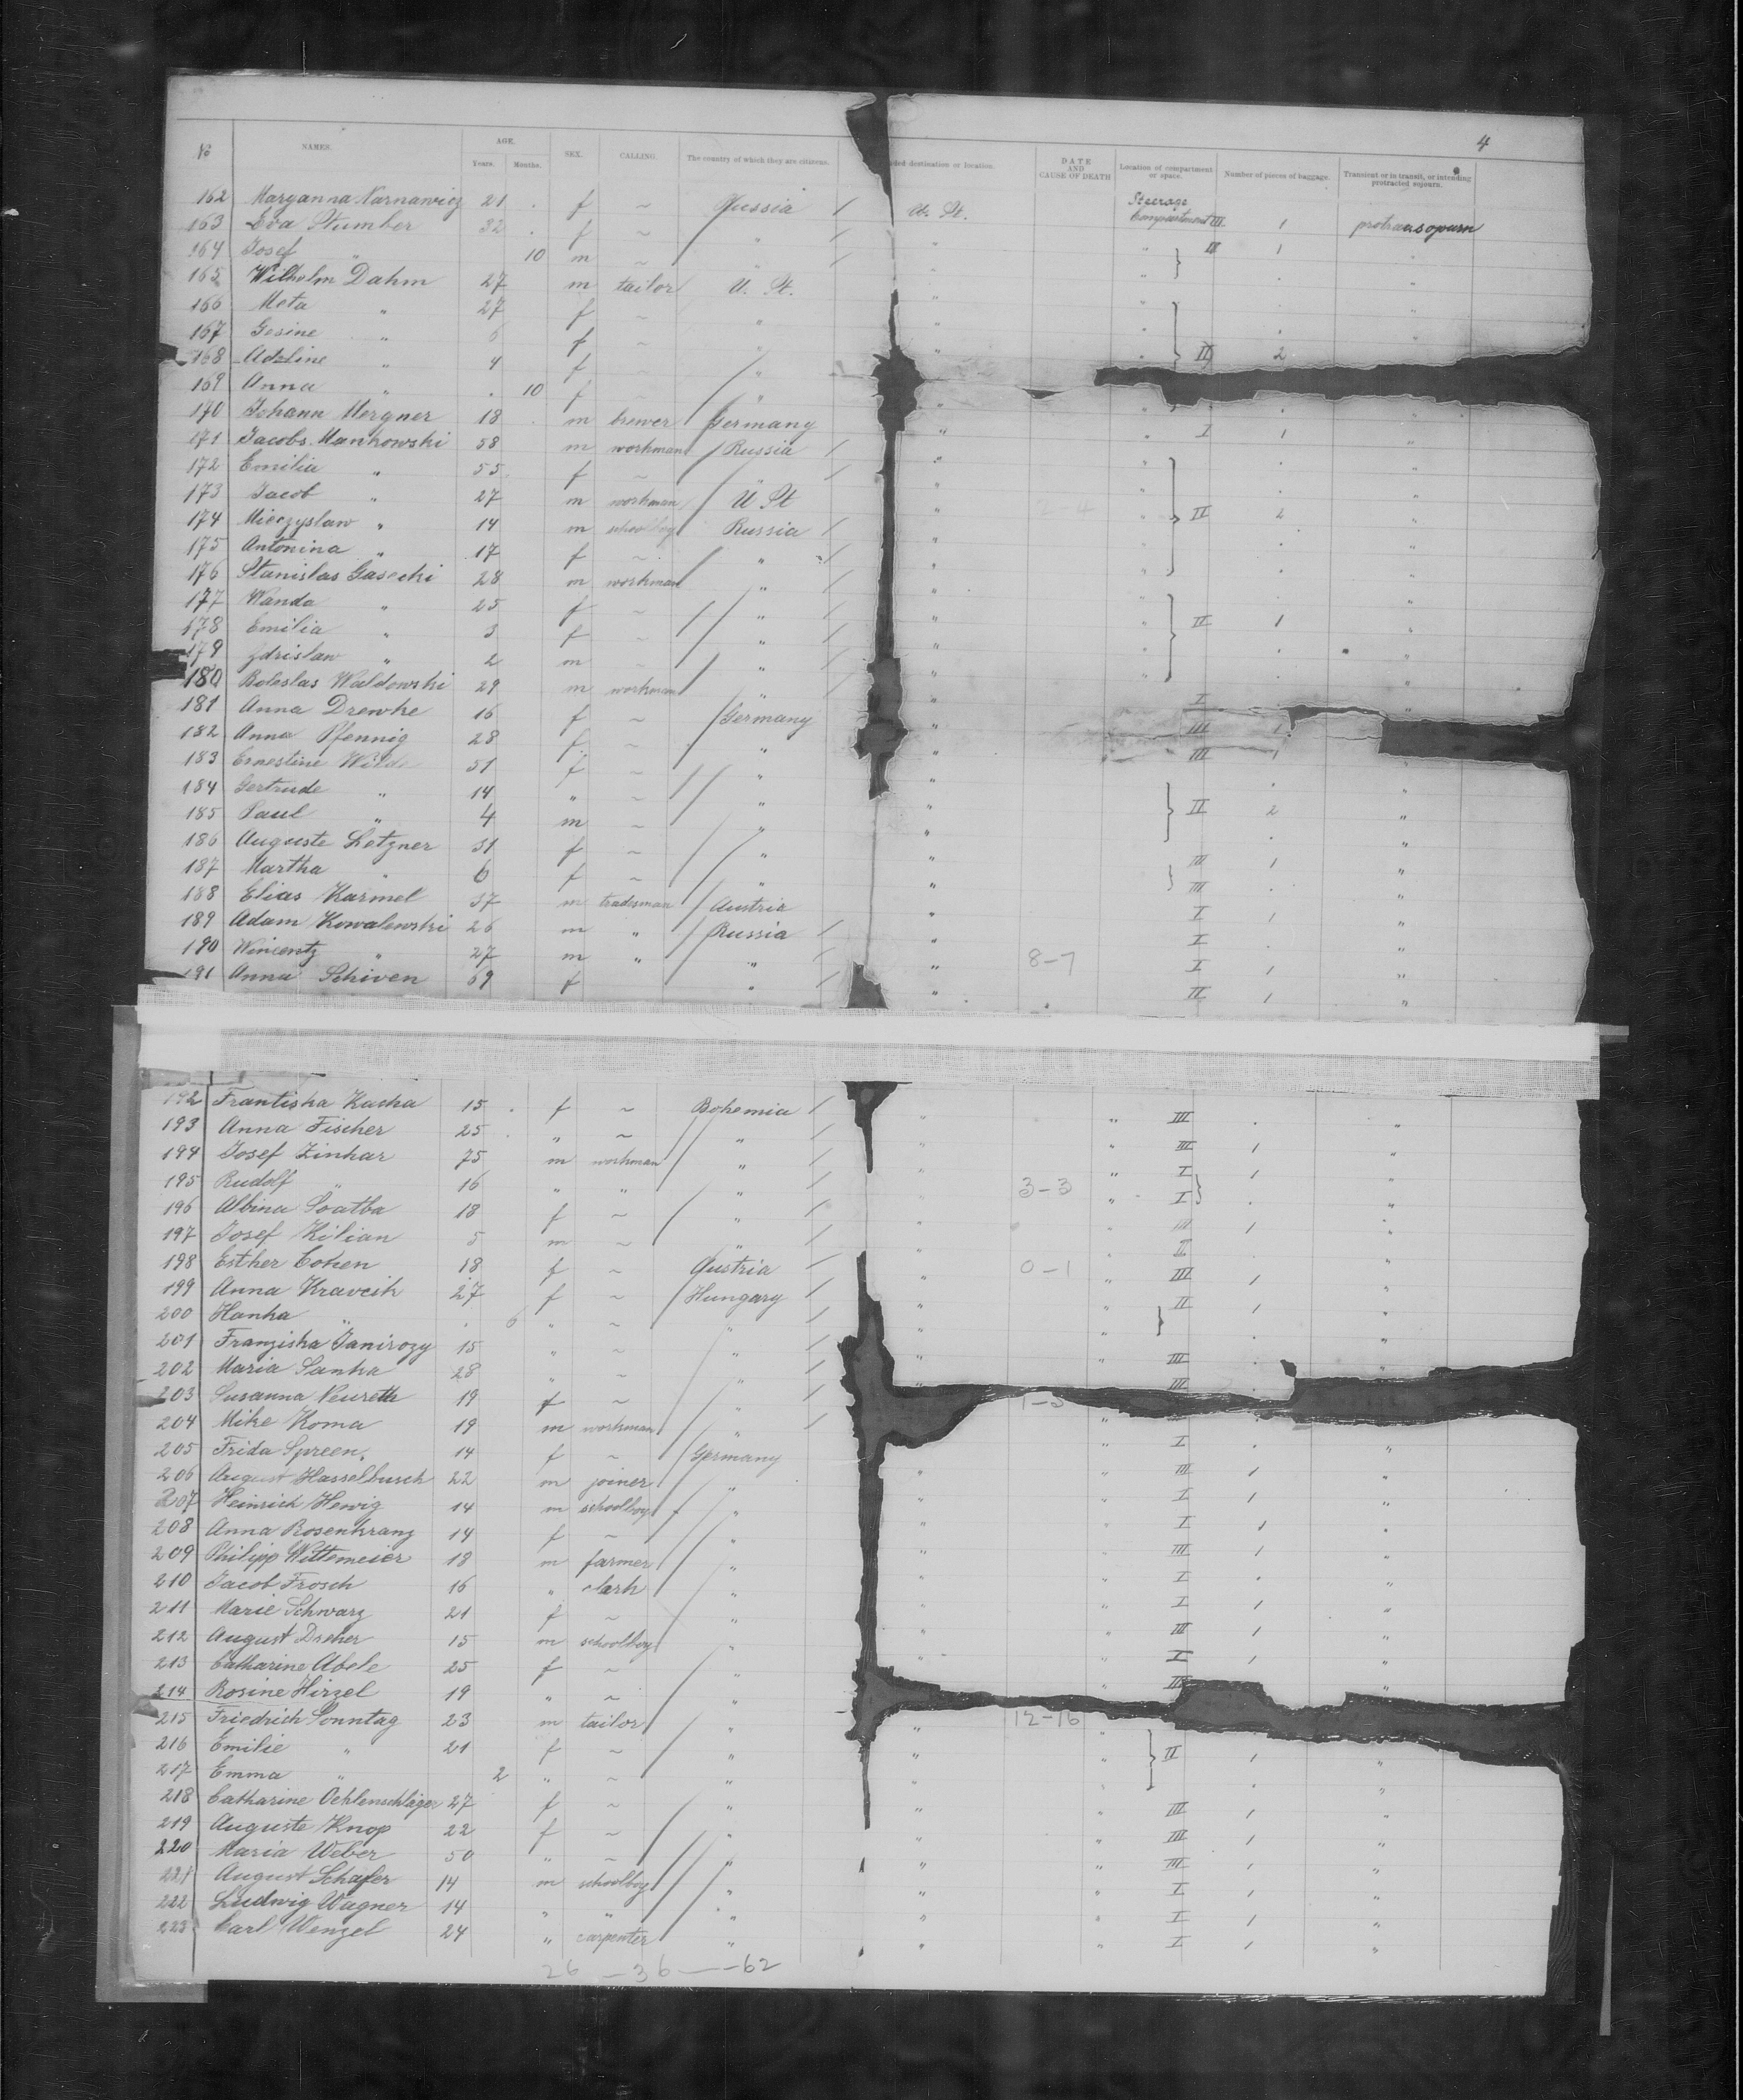 4
No NAMES. AGE. Years. Months. SEX. CALLING. The country of which they are citizens. ded destination or location. DATE AND CAUSE OF DEATH Location of compartment or space. Number of pieces of baggage. Transient or in transit, or intending protracted sojourn.
162 Maryanna Narnawicz 21 . f ~ Russia / U. St. Steerage
163 Eva Stumber 32 . f ~ " / " Compartment III. 1
164 Josef " 10 m ~ " / " " II 1 "
165 Wilhelm Dahm 27 m tailor U. St. " " . "
166 Meta " 27 f ~ " " " . "
167 Gesine " 6 f ~ " " " . "
168 Adeline " 4 f ~ " " " II 2
169 Anna " . 10 f " " " . "
170 Johann Mergner 18 . m brewer Germany " " I 1 "
171 Jacobs Mankowski 58 m workman Russia / " " . "
172 Emilia " 55 f ~ " / " " . "
173 Jacob " 27 m workman U St " " II 2 "
174 Mieczyslaw " 14 m schoolboy Russia / " " . "
175 Antonina " 17 f ~ " / " " . "
176 Stanislas Gasecki 28 m workman " / " " . "
177 Wanda " 25 f ~ " / " " III 1 "
178 Emilia " 3 f ~ " / " " . "
179 Zdrislaw " 2 m ~ " / " " . "
180 Boleslas Waldowski 29 m workman " / " I "
181 Anna Drewke 16 f ~ Germany " III 1
182 Anna Pfennig 28 f ~ " " III 1 "
183 Ernestine Wilde 51 f ~ " " . "
184 Gertrude " 14 " ~ " " II 2 "
185 Paul " 4 m ~ " " . "
186 Auguste Letzner 31 f ~ " " III 1 "
187 Martha " 6 f ~ " " III . "
188 Elias Karmel 37 m tradesman Austria " I 1 "
189 Adam Kowalewski 26 m " Russia / " I . "
190 Wincenty " 27 m " " / " 8-7 I 1 "
191 Anna Schiven 69 f " / " III 1 "
192 Frantiska Kucha 15 . f ~ Bohemia / " " III . "
193 Anna Fischer 25 . " ~ " / " " III 1 "
194 Josef Zinhar 75 m workman " / " I 1 "
195 Rudolf " 16 " " " / " 3-3 " I . "
196 Albina Soatba 18 f ~ " / " " III 1 "
197 Josef Kilian 5 m ~ " / " " II . "
198 Esther Cohen 18 f ~ Austria / " 0-1 " III 1 "
199 Anna Kravcik 27 f ~ Hungary / " " II 1 "
200 Hanka " . 6 " ~ " / " " . "
201 Franziska Janirozy 15 " ~ " / " " III . "
202 Maria Sanka 28 " ~ " / " III .
203 Susanna Neureth 19 f ~ " / 1-3 "
204 Mike Koma 19 m workman " / " I . "
205 Frida Spreen. 14 f ~ Germany " " III 1 "
206 August Hasselbusch 22 m joiner " " " I 1 "
207 Heinrich Hewig 14 m schoolboy " " I 1 "
208 Anna Rosenkranz 14 f ~ " " " III 1 "
209 Philipp Wittemeier 18 m farmer " " " I . "
210 Jacob Frosch 16 " clark " " " I 1 "
211 Marie Schwarz 21 f ~ " " " III 1 "
212 August Dreher 15 m schoolboy " " I 1 "
213 Catharine Abele 25 f ~ " " III "
214 Rosine Hirzel 19 " ~ "
215 Friedrich Sonntag 23 m tailor " " 12-16 "
216 Emilie " 21 f ~ " " " II 1 "
217 Emma " 2 " ~ " " " . "
218 Catharine Oehlenschläger 27 f ~ " " " III 1 "
219 Auguste Knop 22 f ~ " " " III 1 "
220 Maria Weber 50 " ~ " " " III 1 "
221 August Schafer 14 m schoolboy " " " I 1 "
222 Ludwig Wagner 14 " " " " " I 1 "
223 Carl Wenzel 24 " carpenter " " " I 1 "
26 — 36 — 62